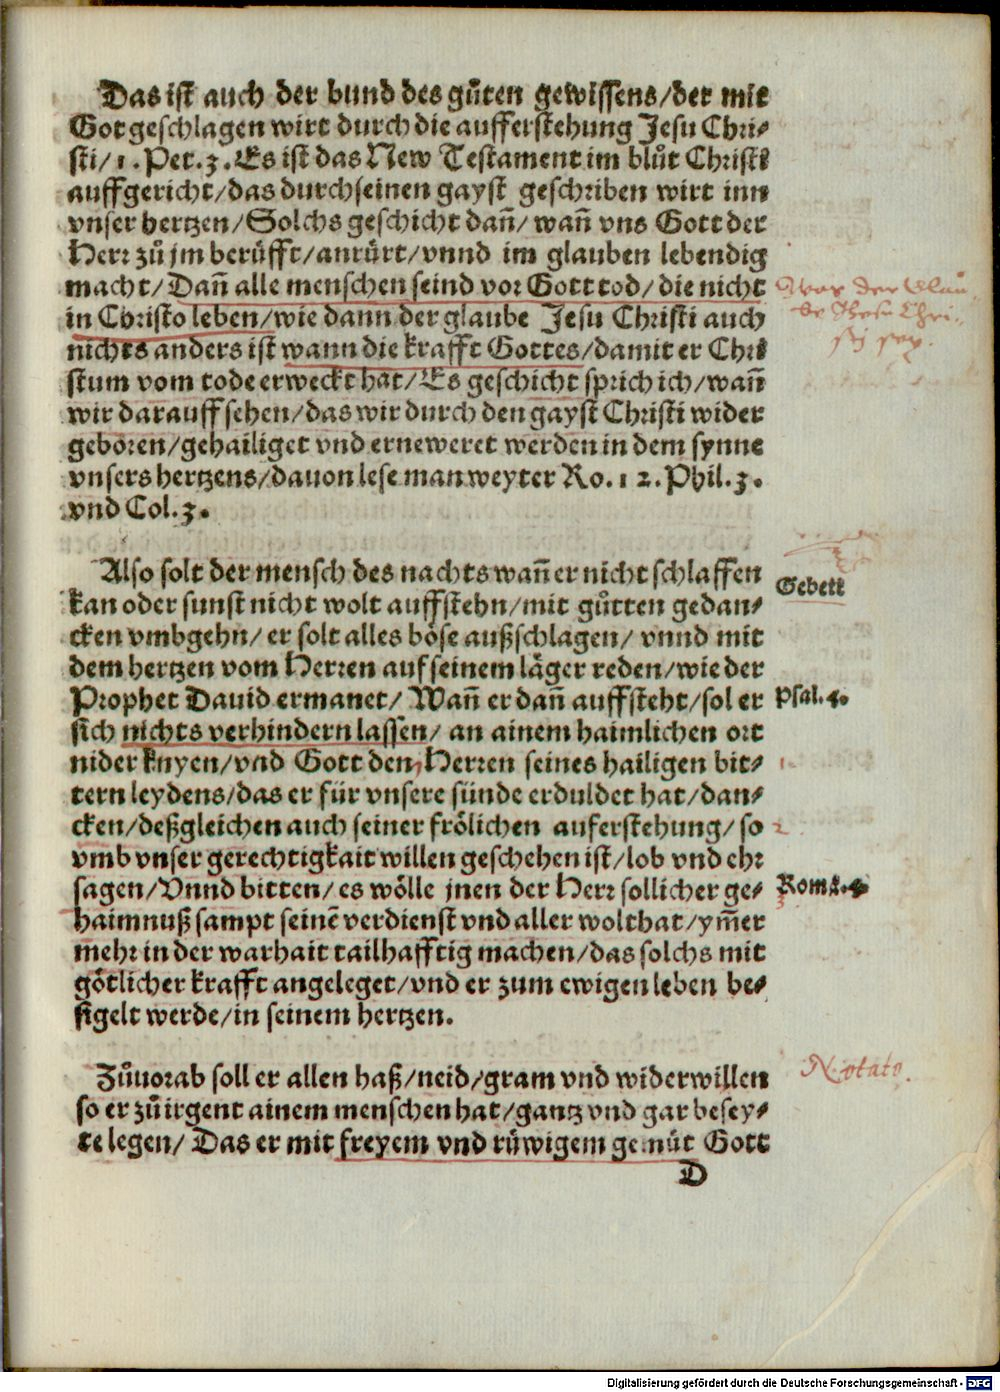 Das ist auch der bund des gůten gewissens/der mit
Got geschlagen wirt durch die aufferstehung Jesu Chri⸗
sti/1. Pet. 3. Es ist das New Testament im blůt Christi
auffgericht/das durch seinen gayst geschriben wirt inn
vnser hertzen/Solchs geschicht dañ/wañ vns Gott der
Herr zů jm berüfft/anrürt/vnnd im glauben lebendig
macht/Dañ alle menschen seind vor Gott tod/die nicht
in Christo leben/wie dann der glaube Jesu Christi auch
nichts anders ist wann die krafft Gottes/damit er Chri
stum vom tode erweckt hat/Es geschicht sprich ich/wañ
wir darauff sehen/das wir durch den gayst Christi wider
geboren/gehailiget vnd erneweret werden in dem synne
vnsers hertzens/dauon lese man weyter Ro. 12. Phil. 3.
vnd Col. 3.
Was der Glau⸗
be Jhesu Chri⸗
sti sey.
Also solt der mensch des nachts wañ er nicht schlaffen
kan oder sunst nicht wolt auffstehn/mit gůtten gedan⸗
cken vmbgehn/er solt alles böse außschlagen/vnnd mit
dem hertzen vom Herren auf seinem läger reden/wie der
Prophet Dauid ermanet/Wañ er dañ auffsteht/sol er
sich nichts verhindern lassen/an ainem haimlichen ort
nider knyen/vnd Gott den Herren seines hailigen bit⸗
tern leydens/das er für vnsere sünde erduldet hat/dan⸗
cken/deßgleichen auch seiner frölichen auferstehung/so
vmb vnser gerechtigkait willen geschehen ist/lob vnd ehr
sagen/Vnnd bitten/es wölle jnen der Herr sollicher ge⸗
haimnuß sampt seinē verdienst vnd aller wolthat/ym̄er
mehr in der warhait tailhafftig machen/das solchs mit
götlicher krafft angeleget/vnd er zum ewigen leben be⸗
sigelt werde/in seinem hertzen.
Gebett
Psal. 4.
Rom. 4.
Zůuorab soll er allen haß/neid/gram vnd widerwillen
so er zů irgent ainem menschen hat/gantz vnd gar besey⸗
te legen/Das er mit freyem vnd rüwigem gemüt Gott
Notato.
D
Digitalisierung gefördert durch die Deutsche Forschungsgemeinschaft - DFG